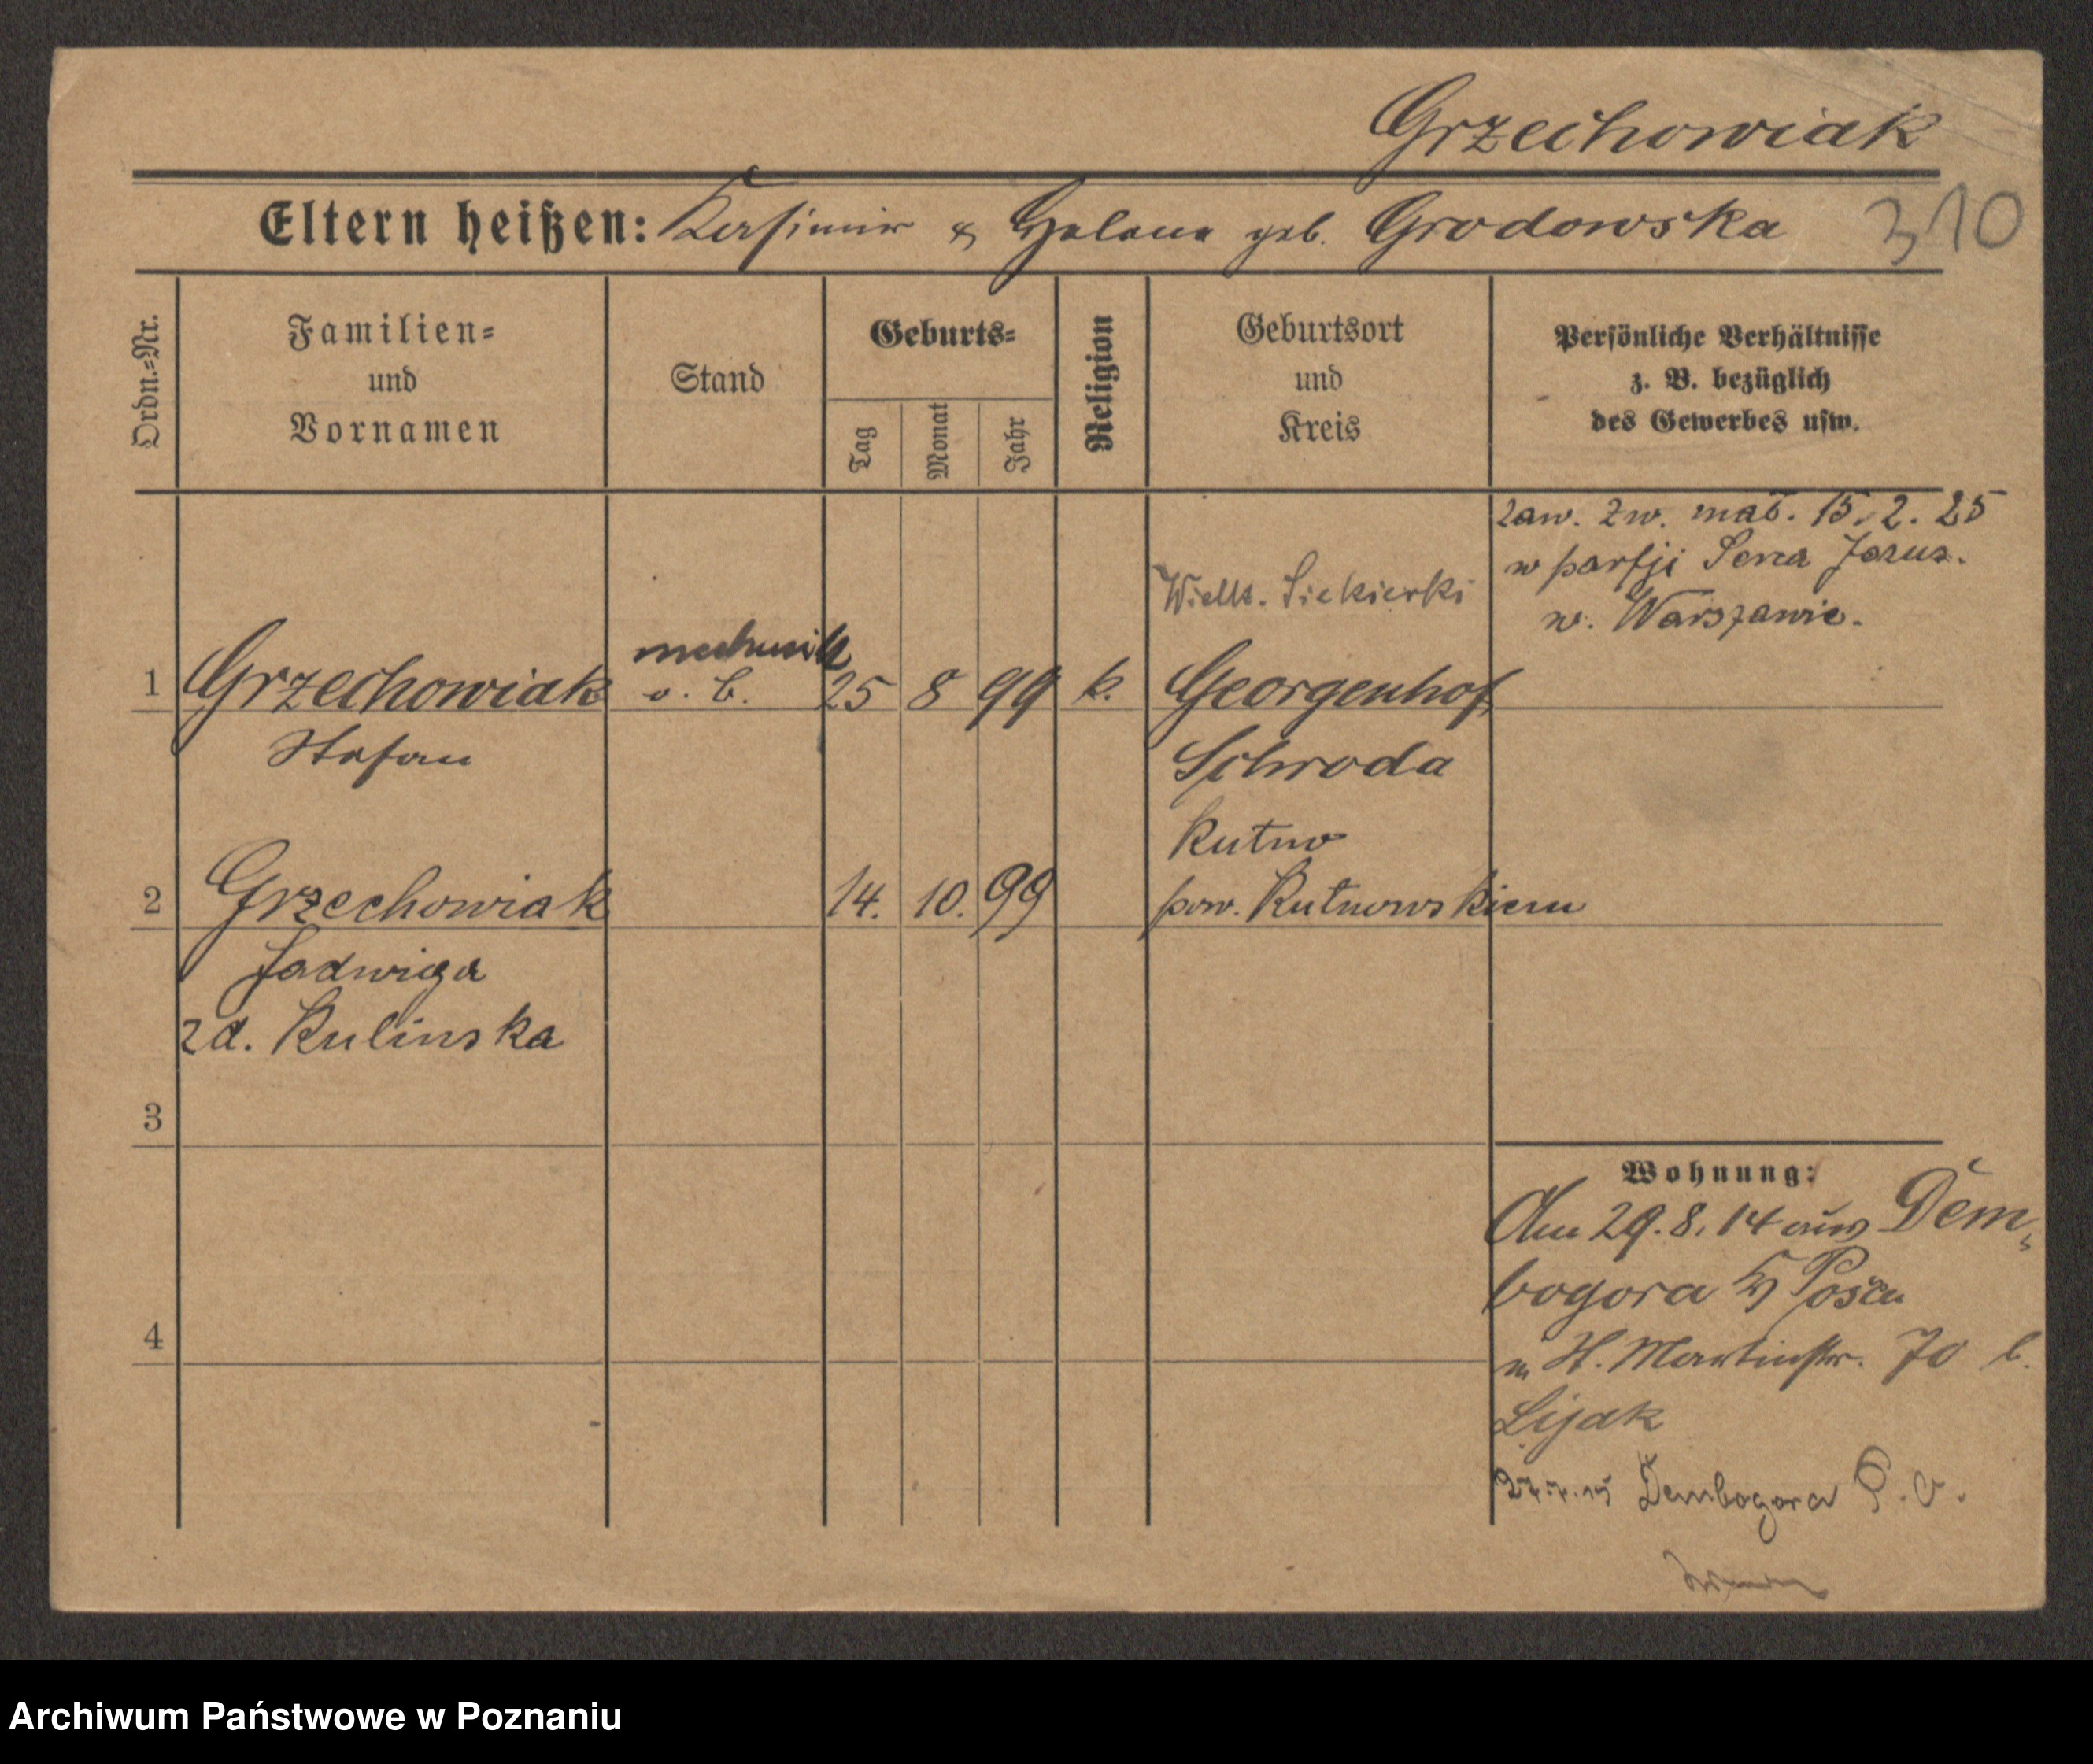 Grzechowiak
310
Eltern heißen: Kasimir & Helene geb. Grodowska
Ordn.=Nr.
Familien=
und
Vornamen
Stand
Geburts=
Tag
Monat
Jahr
Religion
Geburtsort
und
Kreis
Persönliche Verhältnisse
z. B. bezüglich
des Gewerbes usw.
zaw. zw. mał. 15.2.25
w parfji Serca Jezus.
w. Warszawie.
Wielk. Siekierki
mechanik
1 Grzechowiak o. b. 25 8 99 k. Georgenhof
Stefan Schroda
Kutno
2 Grzechowiak 14. 10. 99 pow. Kutnowskiem
Jadwiga
zd. Kulinska
3
Wohnung:
Am 29.8.14 aus Dem-
bogora Posen
St. Martinstr. 70 b.
Lijak
4
27.7.15 Dembogora P. O.
Archiwum Państwowe w Poznaniu